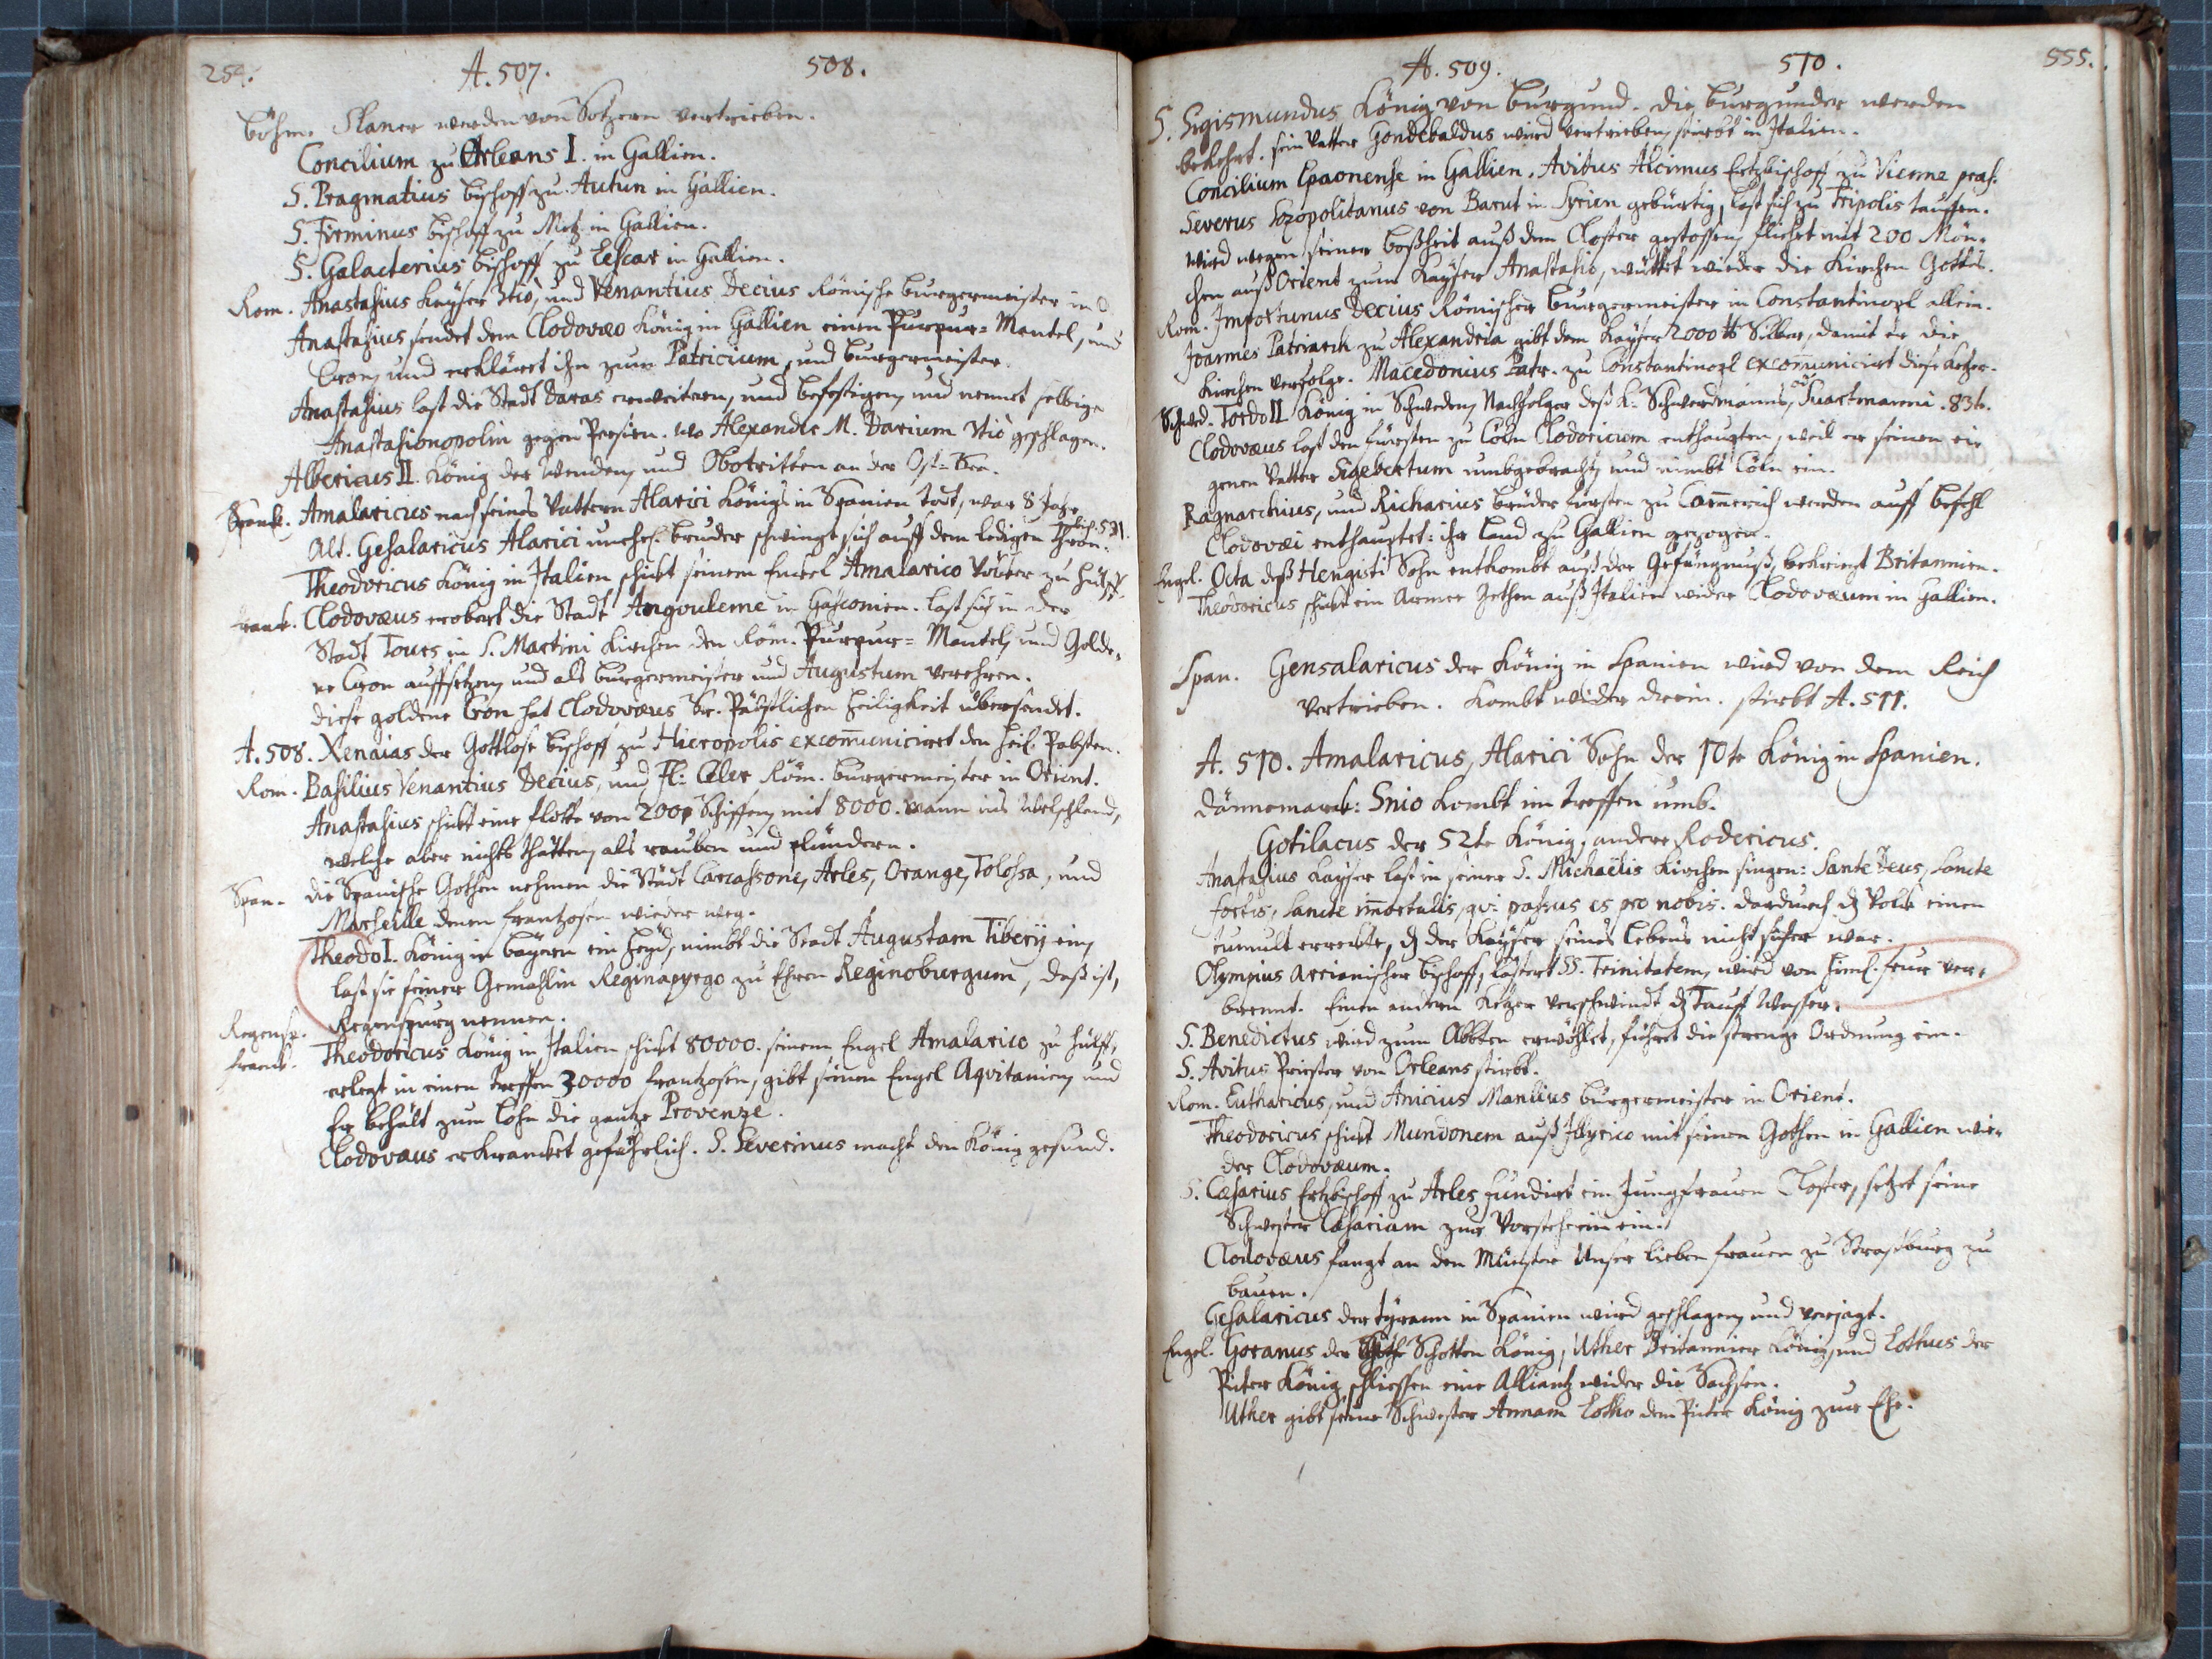 254. A. 507. 508.
Böhm. Slaner werden von Sotzern vertrieben.
Concilium zu Orleans I. in Gallien.
S. Pragmatius Bischoff zu Autun in Gallien.
S. Firminus Bischoff zu Metz in Gallien.
S. Galacterius Bischoff zu Lescar in Gallien.
Rom. Anastasius Kayser 3tiò, und Venantius Decius Römische Burgermeister in O
Anastasius sendet dem Clodovæo König in Gallien einen Purpur=Mantel, und
Cron, und erkläret ihn zum Patricium, und Burgermeister.
Anastasius last die Stadt Daras erweitern, und befestigen, und nennet selbige
Anastasionopolin gegen Persien. wo Alexander M. Darium 3tiò geschlagen.
Albericus II. König der Wenden, und Obotritten an der Ost=See.
Amalaricus nach seines Vattern Alarici Königs in Spanien todt, war 8 Jahr
Alt. Gesalaricus Alarici unehel. bruder schwingt sich auff dem ledigen Thron.
Theodoricus König in Italien schickt seinem Enckel Amalarico Völker zu hülff.
Franck. Clodovæus erobert die Stadt Angouleme in Gasconien. last sich in der
Stadt Tours in S. Martini Kirchen den Röm. Purpur=Mantel, und Golde,
ne Cron auffsetzen, und als Burgermeister und Augustum verehren.
diese goldene Cron hat Clodovæus Sr. Päbstlichen heiligkeit übersendet.
A. 508. Xenaias der Gottlose Bischoff zu Hieropolis excom̄uniciret den heil. Pabsten.
Rom. Basilius Venantius Decius, und Fl: Celer Röm. Burgermeister in Orient.
Anastasius schickt eine flotte von 200 Schiffen, mit 8000. mann ins Welschland,
welche aber nichts thätten, als rauben und plündern.
Span. die Spanische Gothen nehmen die Städt Carcassone, Arles, Orange, Tolossa, und
Marseille denen frantzosen wieder weg.
Theodo I. König in bayern ein heyd, nimbt die Stadt Augustam Tiberij ein,
last sie seiner Gemahlin Reginapyrgo zu Ehren Reginoburgum, daß ist,
Regensp. Regenspurg nennen.
Franck. Theodoricus König in Italien schickt 80000. seinem Engel Amalarico zu hülff,
erlegt in einen treffen 30000 frantzosen, gibt seinen Engel Aqvitanien, und
Er behält zum Lohn die gantze Provenze.
Clodovæus erkrancket gefährlich. S. Severinus macht den König gesund.
A. 509. 510. 555.
S. Sigismundus König von Burgund. die Burgunder werden
bekehrt. sein Vatter Gondebaldus wird vertrieben, stirbt in Italien.
Concilium Epaonense in Gallien. Avitus Alcimus Ertzbischoff zu Vienne præs.
Severus Sozopolitanus von Barut in Syrien gebürtig, last sich zu Tripolis tauffen.
wird wegen seiner boßheit auß dem Closter gestossen, fliehet mit 200 Mön.
chen auß Orient zum Kayser Anastasio, wüttet wieder die Kirchen Gottes.
Rom. Importunus Decius Römischer Burgermeister in Constantinopl allein.
Joannes Patriarch zu Alexandria gibt dem Kayser 2000 ℔ Silber, damit er die
Kirchen verfolge. Macedonius Patr. zu Constantinopl excom̄uniciret diese Ketzer.
Schwed. Tordo II König in Schweden, Nachfolger deß K. Schwerdmanns, od Suartmanni. 83te.
Clodovæus last den fürsten zu Cöln Clodoricum enthaupten, weil er seinen ei
genen Vatter Sigebertum umbgebracht, und nimbt Cöln ein.
Ragnarchius, und Richarius brüder fürsten zu Cam̄erich werden auff befehl
Clodovæi enthauptet: ihr land zu Gallien gezogen.
Engel. Octa deß Hengisti Sohn entkombt auß der Gefängnuß, bekriegt Britannien.
Theodoricus schickt ein Armee Gothen auß Italien wider Clodovæum in Gallien.
Span. Gensalaricus der König in Spanien wird von dem Reich
vertrieben. Kombt wider drein. stirbt A. 511.
A. 510. Amalaricus, Alarici Sohn der 10te König in Spanien.
Dännemarck: Snio kombt im treffen umb.
Gotilacus der 52te König, andere Rodericus.
Anastasius Kayser last in seiner S. Michaëlis Kirchen singen: Sancte Deus, Sancte
fortis, Sancte im̄ortalis, qvi passus es pro nobis. dardurch dz Volk einen
tumult erweckte, dz der Kayser seines Lebens nicht sicher war.
Olympius Arrianischer Bischoff, lästert SS. Trinitatem, wird von himl. feur ver,
brennt. Einen andern Ketzer verschwindt dz Tauff Wasser.
S. Benedictus wird zum Abbten erwöhlet, führet die strenge Ordnung ein.
S. Avitus Priester von Orleans stirbt.
Rom. Eutharicus, und Anicius Manlius Burgermeister in Orient.
Theodoricus schickt Mundonem auß Illyrico mit seinen Gothen in Gallien wi,
der Clodovæum.
S. Cæsarius Ertzbischoff zu Arles fundirt ein Jungfrauen Closter, setzet seine
Schwester Cæsariam zur Vorsteherin ein.
Clodovæus fangt an den Münster Unser lieben frauen zu Straßburg zu
bauen.
Gesalaricus der tyrann in Spanien wird geschlagen, und verjagt.
Engel. Goranus der Schotten König, Uther Britannier König, und Lothus der
Picter König schliessen eine Alliantz wider die Sachsen.
Uther gibt seine Schwester Annam Lotho dem Picter König zur Ehe.